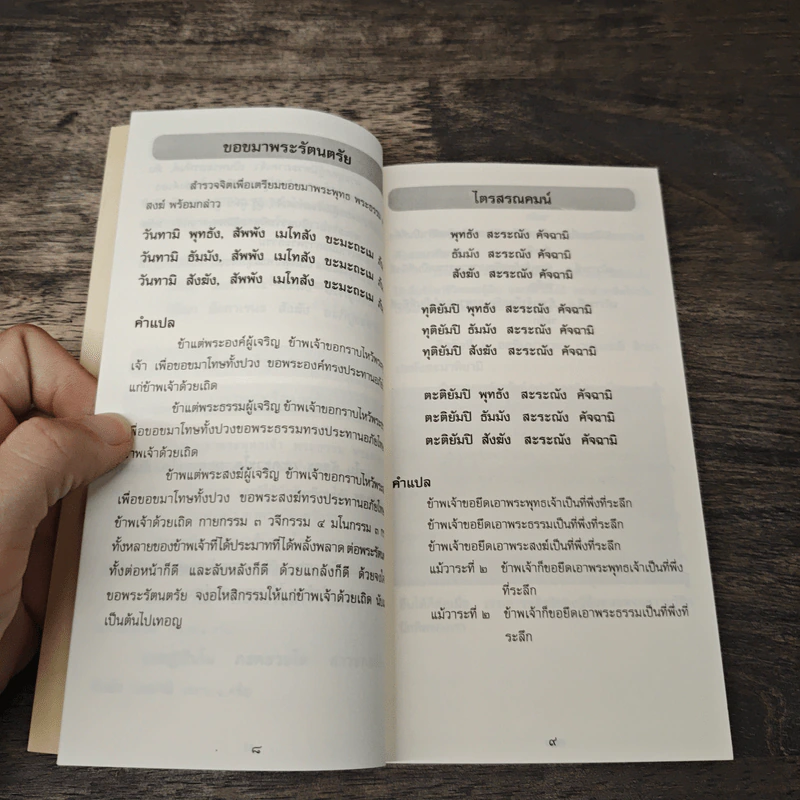 ขอขมาพระรัตนตรัย
สำรวจจิตเพื่อเตรียมขอขมาพระพุทธ พระธรรม
สงฆ์ พร้อมกล่าว
วันทามิ พุทธัง, สัพพัง เมโทสัง ขะมะถะเม
วันทามิ ธัมมัง, สัพพัง เมโทสัง ขะมะถะเม
วันทามิ สังฆัง, สัพพัง เมโทสัง ขะมะถะเม
คำแปล
ข้าแต่พระองค์ผู้เจริญ ข้าพเจ้าขอกราบไหว้พระพุทธ
เจ้า เพื่อขอขมาโทษทั้งปวง ขอพระองค์ทรงประทานอภัย
แก่ข้าพเจ้าด้วยเถิด
ข้าแต่พระธรรมผู้เจริญ ข้าพเจ้าขอกราบไหว้
เพื่อขอขมาโทษทั้งปวงขอพระธรรมทรงประทานอภัย
ข้าพเจ้าด้วยเถิด
ข้าแต่พระสงฆ์ผู้เจริญ ข้าพเจ้าขอกราบไหว้
เพื่อขอขมาโทษทั้งปวง ขอพระสงฆ์ทรงประทานอภัย
ข้าพเจ้าด้วยเถิด กายกรรม ๓ วจีกรรม ๔ มโนกรรม ๓
ทั้งหลายของข้าพเจ้าที่ได้ประมาทที่ได้พลั้งพลาด ต่อพระรัตน
ทั้งต่อหน้าก็ดี และลับหลังก็ดี ด้วยแกล้งก็ดี
ขอพระรัตนตรัย จงอโหสิกรรมให้แก่ข้าพเจ้าด้วยเถิด
เป็นต้นไปเทอญ
๘
ไตรสรณคมน์
พุทธัง สะระณัง คัจฉามิ
ธัมมัง สะระณัง คัจฉามิ
สังฆัง สะระณัง คัจฉามิ
ทุติยัมปิ พุทธัง สะระณัง คัจฉามิ
ทุติยัมปิ ธัมมัง สะระณัง คัจฉามิ
ทุติยัมปิ สังฆัง สะระณัง คัจฉามิ
ตะติยัมปิ พุทธัง สะระณัง คัจฉามิ
ตะติยัมปิ ธัมมัง สะระณัง คัจฉามิ
ตะติยัมปิ สังฆัง สะระณัง คัจฉามิ
คำแปล
ข้าพเจ้าขอยึดเอาพระพุทธเจ้าเป็นที่พึ่งที่ระลึก
ข้าพเจ้าขอยึดเอาพระธรรมเป็นที่พึ่งที่ระลึก
ข้าพเจ้าขอยึดเอาพระสงฆ์เป็นที่พึ่งที่ระลึก
แม้วาระที่ ๒ ข้าพเจ้าก็ขอยึดเอาพระพุทธเจ้าเป็นที่พึ่ง
ที่ระลึก
แม้วาระที่ ๒ ข้าพเจ้าก็ขอยึดเอาพระธรรมเป็นที่พึ่งที่
ระลึก
๙